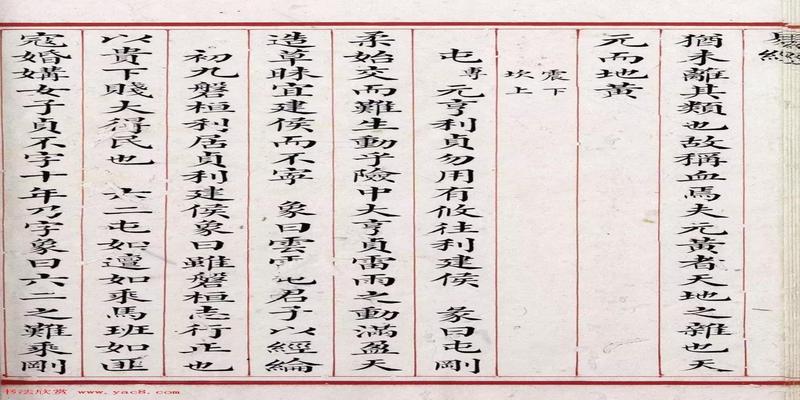 易經
猶未離其類也故稱血焉夫元黃者天地之雜也天
元而地黃
震下
坎上
屯專元亨利貞勿用有攸往利建侯 彖曰屯剛
柔始交而難生動乎險中大亨貞雷雨之動滿盈天
造草昧宜建侯而不寧 象曰雲雷屯君子以經綸
初九磐桓利居貞利建侯象曰雖磐桓志行正也
以貴下賤大得民也 六二屯如邅如乘馬班如匪
寇婚媾女子貞不字十年乃字象曰六二之難乘剛
书法欣赏 www.yac8.com